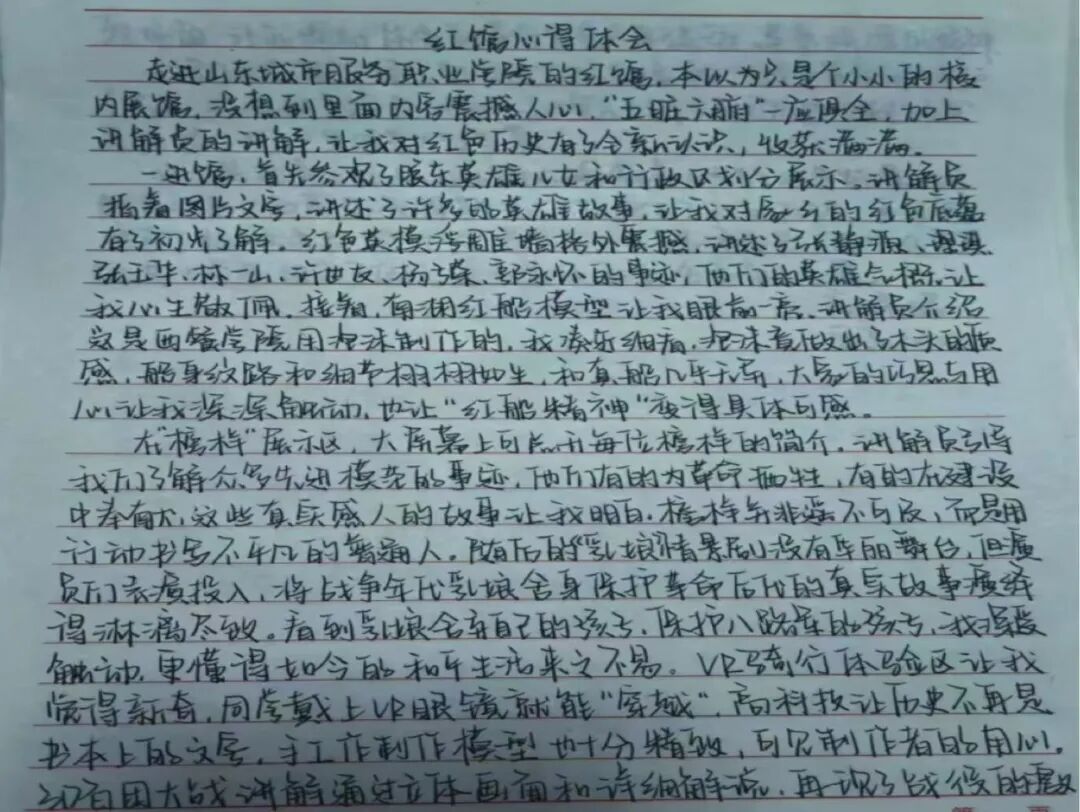 红馆心得体会
走进山东城市服务职业学院的红馆，本以为只是个小小的校
内展馆，没想到里面内容震撼人心，“五脏六腑”一应俱全，加上
讲解员的讲解，让我对红色历史有了全新认识，收获满满。
一进馆，首先参观了胶东英雄儿女和行政区划分展示。讲解员
指着图片文字，讲述了许多的英雄故事，让我对家乡的红色底蕴
有了初步了解。红色英模浮雕主墙格外震撼，讲述了张静源、理琪
张玉华、林一山、许世友、杨子荣、郭永怀的事迹，他们的英雄气概让
我心生敬佩。接着，南湖红船模型让我眼前一亮，讲解员介绍
这是西餐学院用泡沫制作的，我凑近细看，泡沫竟做出了木头的质
感，船身纹路和细节栩栩如生，和真船几乎无异，大家的巧思与用
心让我深深触动，也让“红船精神”变得具体可感。
在“榜样”展示区，大屏幕上可点开每位榜样的简介。讲解员引导
我们了解众多先进模范的事迹，他们有的为革命牺牲，有的在建设
中奉献，这些真实感人的故事让我明白，榜样并非遥不可及，而是用
行动书写不平凡的普通人。随后的《乳娘》情景剧没有华丽舞台，但演
员们表演投入，将战争年代乳娘舍身保护革命后代的真实故事演绎
得淋漓尽致。看到乳娘舍弃自己的孩子，保护八路军的孩子，我深受
触动，更懂得如今的和平生活来之不易。VR骑行体验区让我
觉得新奇，同学戴上VR眼镜就能“穿越”，高科技让历史不再是
书本上的文字，手工作制作模型也十分精致，可见制作者的用心。
3D百团大战讲解通过立体画面和详细解说，再现了战役的震